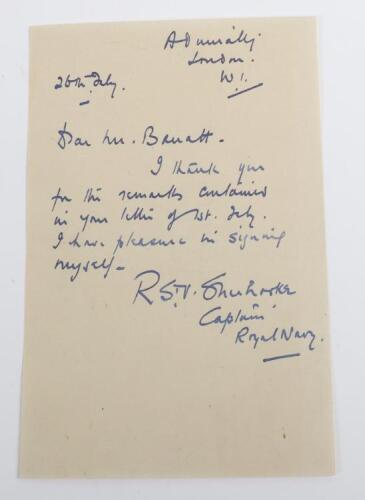 Admiralty
London.
26th July. W1.
Dear Mr. Barratt.
I thank you
for the remarks contained
in your letter of 1st. July.
I have pleasure in signing
myself -
R St. V. Sherbrooke
Captain
Royal Navy.